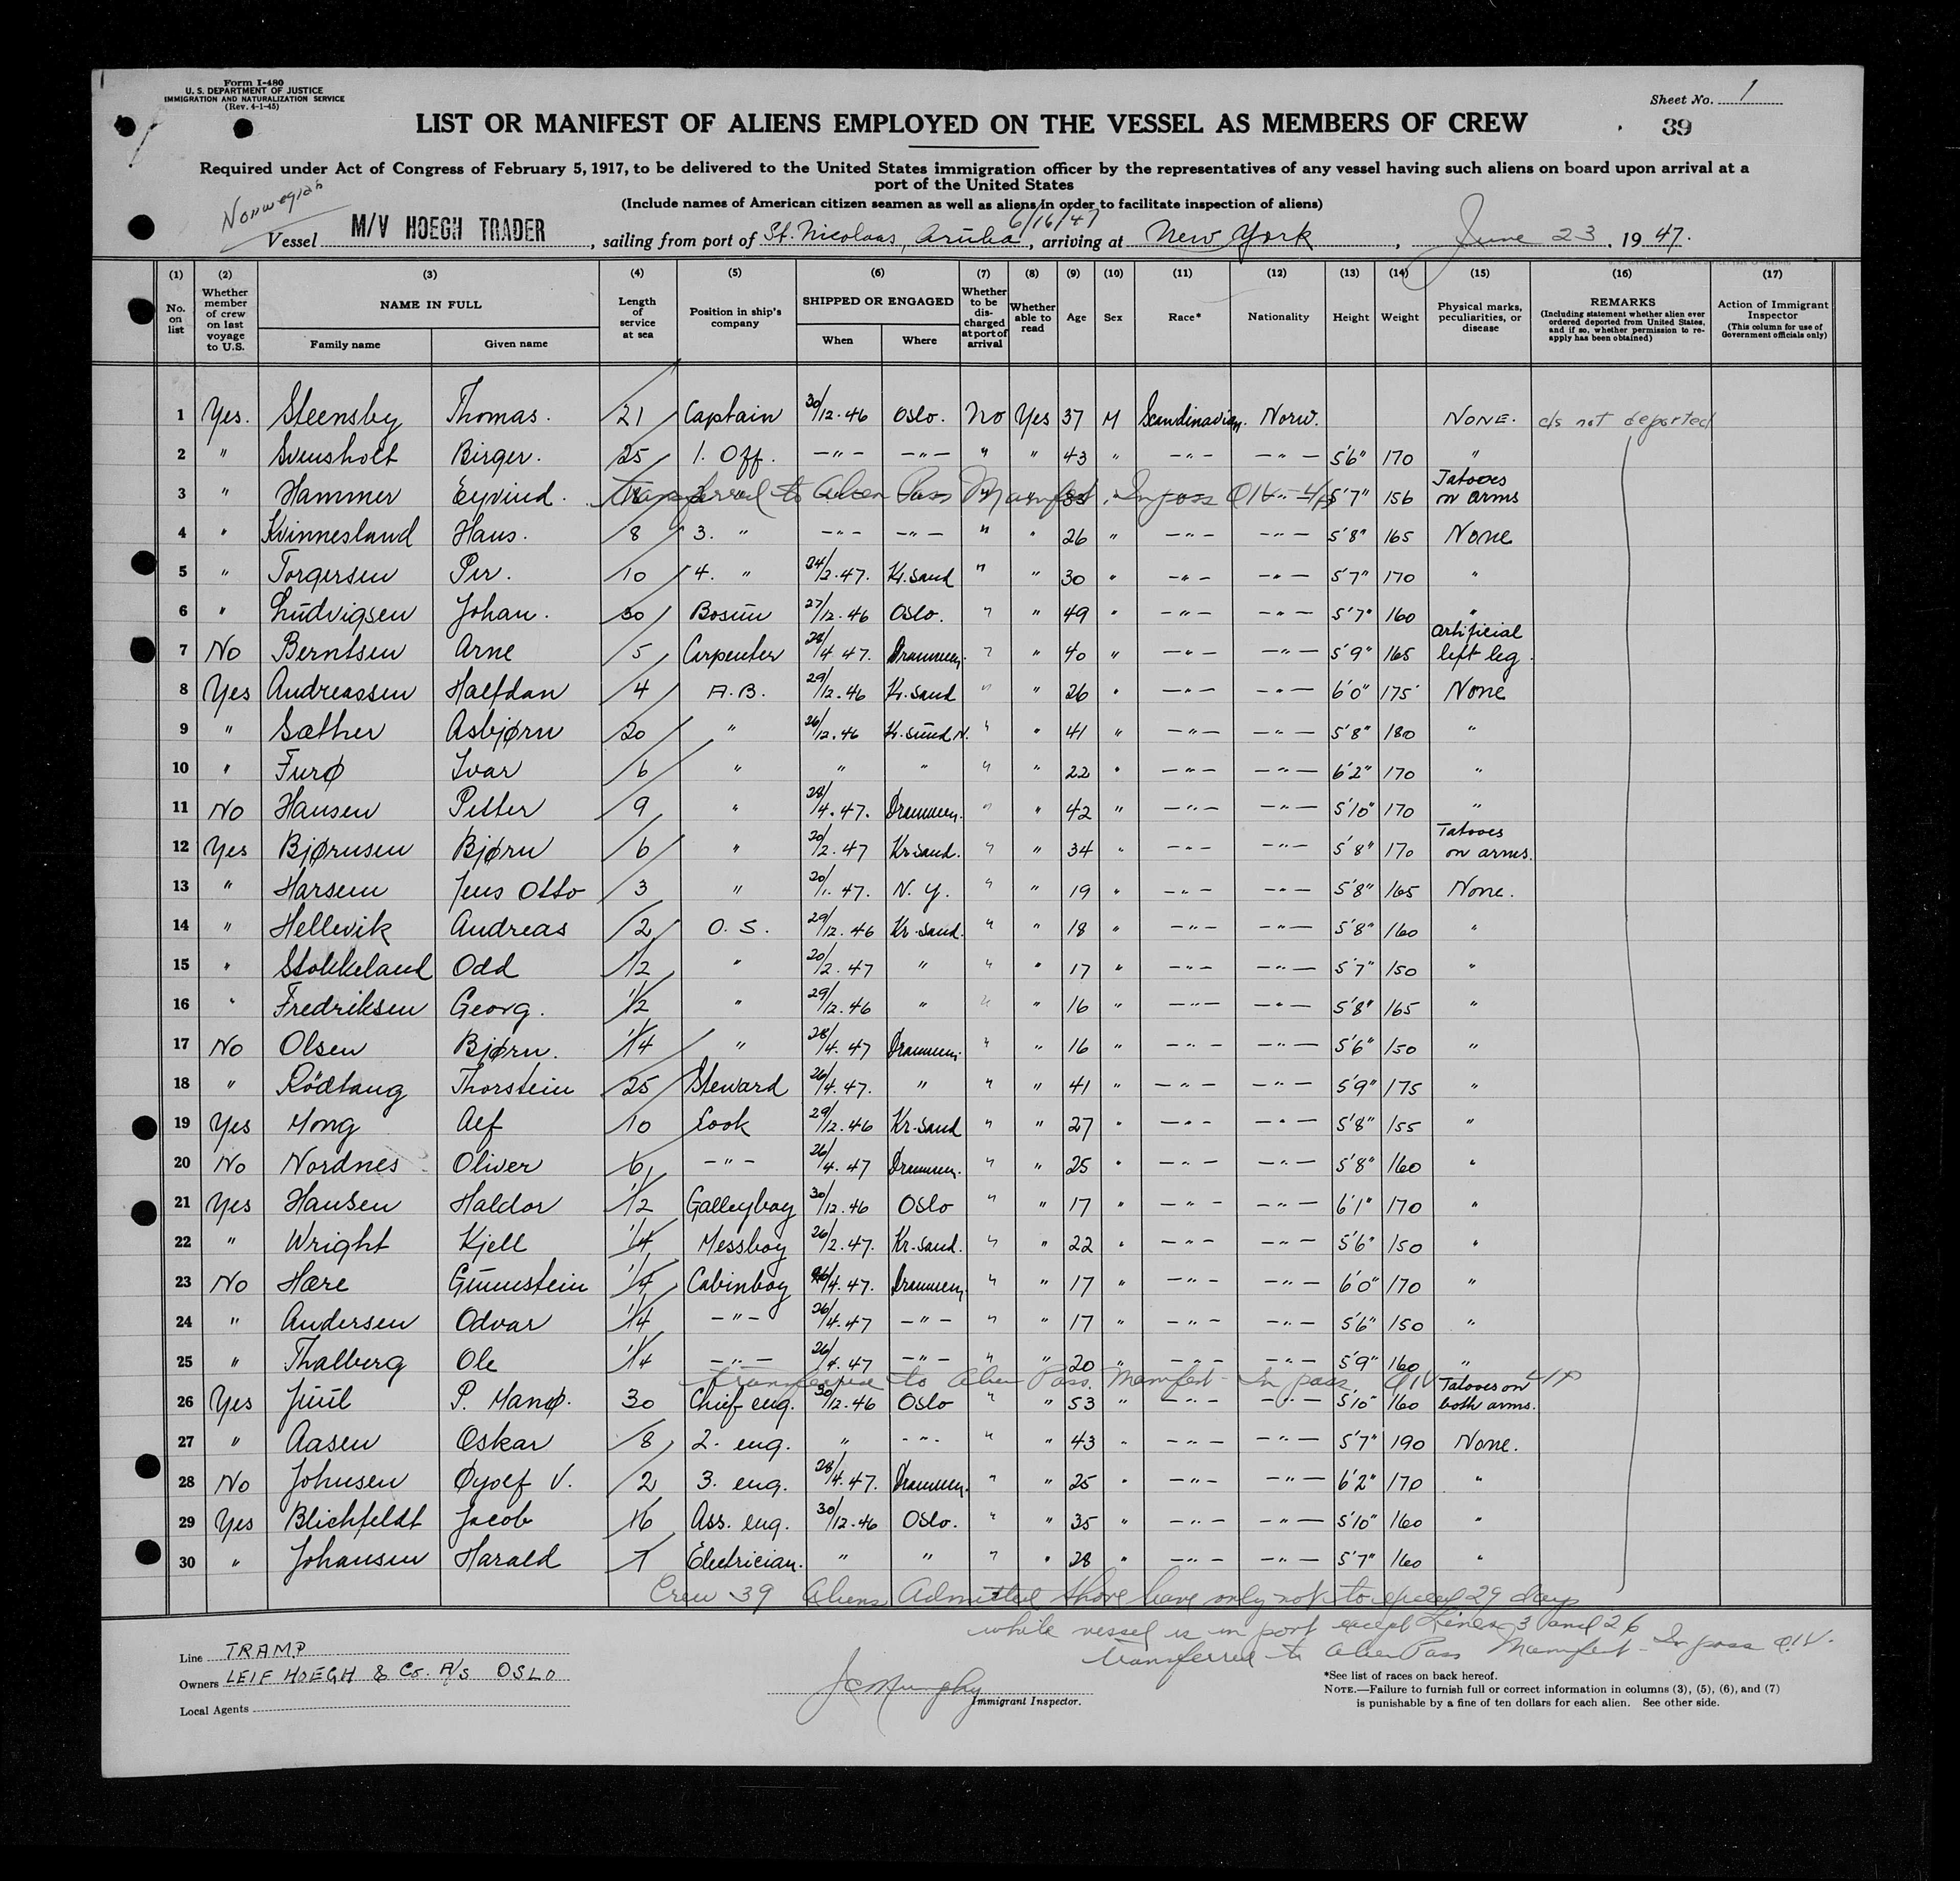 Form I-480
U. S. DEPARTMENT OF JUSTICE
IMMIGRATION AND NATURALIZATION SERVICE
(Rev. 4-1-45)
Sheet No. 1
39
LIST OR MANIFEST OF ALIENS EMPLOYED ON THE VESSEL AS MEMBERS OF CREW
Required under Act of Congress of February 5, 1917, to be delivered to the United States immigration officer by the representatives of any vessel having such aliens on board upon arrival at a
port of the United States
(Include names of American citizen seamen as well as aliens in order to facilitate inspection of aliens)
Norwegian
6/16/47
Vessel M/V HOEGH TRADER, sailing from port of St. Nicolaas, Aruba, arriving at New York, June 23, 1947.
(1) No. on list (2) Whether member of crew on last voyage to U.S. (3) NAME IN FULL Family name Given name (4) Length of service at sea (5) Position in ship's company (6) SHIPPED OR ENGAGED When Where (7) Whether to be discharged at port of arrival (8) Whether able to read (9) Age (10) Sex (11) Race* (12) Nationality (13) Height (14) Weight (15) Physical marks, peculiarities, or disease (16) REMARKS (Including statement whether alien ever ordered deported from United States, and if so, whether permission to reapply has been obtained) (17) Action of Immigrant Inspector (This column for use of Government officials only)
1 Yes. Steensby Thomas. 21 Captain 30/12.46 Oslo. No Yes 37 M Scandinavian. Norw. NONE. c/s not deported
2 " Svensholt Birger. 25 1. Off. —"— —"— " " 43 " —"— —"— 5'6" 170 "
3 " Hammer Eyvind. " 5'7" 156 Tatooes on arms
Transferred to Alien Pass Manifest. In pass QIV-4/P
4 " Kvinnesland Hans. 8 3. " —"— —"— " " 26 " —"— —"— 5'8" 165 None
5 " Torgersen Per. 10 4. " 24/2.47. Kr.sand " " 30 " —"— —"— 5'7" 170 "
6 " Ludvigsen Johan. 30 Bosun 27/12.46 Oslo. " " 49 " —"— —"— 5'7" 160 "
7 No Berntsen Arne 5 Carpenter 28/4 47. Drammen. " " 40 " —"— —"— 5'9" 165 Artificial left leg.
8 Yes Andreassen Halfdan 4 A.B. 29/12.46 Kr.sand " " 26 " —"— —"— 6'0" 175 None
9 " Sæther Asbjørn 20 " 26/12.46 Kr.sund N. " " 41 " —"— —"— 5'8" 180 "
10 " Furø Ivar 6 " " " " " 22 " —"— —"— 6'2" 170 "
11 No Hansen Petter 9 " 28/4.47. Drammen. " " 42 " —"— —"— 5'10" 170 "
12 Yes Bjørnsen Bjørn 6 " 20/2.47 Kr.sand. " " 34 " —"— —"— 5'8" 170 Tatooes on arms.
13 " Harsem Jens Otto 3 " 20/1.47. N.Y. " " 19 " —"— —"— 5'8" 165 None.
14 " Hellevik Andreas 2 O.S. 29/12.46 Kr.sand. " " 18 " —"— —"— 5'8" 160 "
15 " Stokkeland Odd 1/2 " 20/2.47 " " " 17 " —"— —"— 5'7" 150 "
16 " Fredriksen Georg. 1/2 " 29/12.46 " " " 16 " —"— —"— 5'8" 165 "
17 No Olsen Bjørn. 1/4 " 28/4.47 Drammen. " " 16 " —"— —"— 5'6" 150 "
18 " Rödtang Thorstein 25 Steward 26/4.47. " " " 41 " —"— —"— 5'9" 175 "
19 Yes Mong Alf 10 Cook 29/12.46 Kr.sand " " 27 " —"— —"— 5'8" 155 "
20 No Nordnes Oliver 6 —"— 26/4.47 Drammen. " " 25 " —"— —"— 5'8" 160 "
21 Yes Hansen Haldor 1/2 Galleyboy 30/12.46 Oslo " " 17 " —"— —"— 6'1" 170 "
22 " Wright Kjell 1/4 Messboy 26/2.47. Kr.sand. " " 22 " —"— —"— 5'6" 150 "
23 No Hære Gunnstein 1/4 Cabinboy 26/4.47. Drammen. " " 17 " —"— —"— 6'0" 170 "
24 " Andersen Odvar 1/4 —"— 26/4.47 —"— " " 17 " —"— —"— 5'6" 150 "
25 " Thalberg Ole 1/4 —"— 26/4.47 —"— " " 20 " —"— —"— 5'9" 160 "
Transferred to Alien Pass. Manifest - In pass QIV 4/P
26 Yes Juul P. Manø. 30 Chief eng. 30/12.46 Oslo " " 53 " —"— —"— 5'10" 160 Tatooes on both arms.
27 " Aasen Oskar 8 2. eng. " -"- " " 43 " —"— —"— 5'7" 190 None.
28 No Johnsen Øyolf V. 2 3. eng. 28/4.47. Drammen. " " 25 " —"— —"— 6'2" 170 "
29 Yes Blichfeldt Jacob 16 Ass. eng. 30/12.46 Oslo. " " 35 " —"— —"— 5'10" 160 "
30 " Johansen Harald 7 Electrician. " " " " 28 " —"— —"— 5'7" 160 "
Crew 39 Aliens Admitted shore leave only not to exceed 29 days
while vessel is in port except Lines 3 and 26
transferred to Alien Pass Manifest - In pass QIV.
Line TRAMP
Owners LEIF HOEGH & Co. A/S OSLO
Local Agents
J C Murphy
Immigrant Inspector.
*See list of races on back hereof.
NOTE.—Failure to furnish full or correct information in columns (3), (5), (6), and (7)
is punishable by a fine of ten dollars for each alien. See other side.